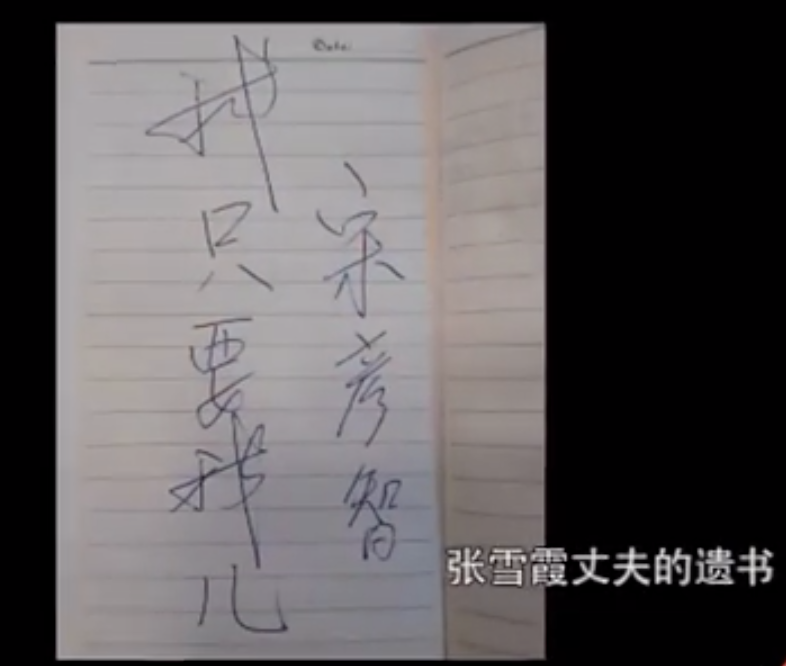 Date:
我只要我儿
宋彦智
张雪霞丈夫的遗书